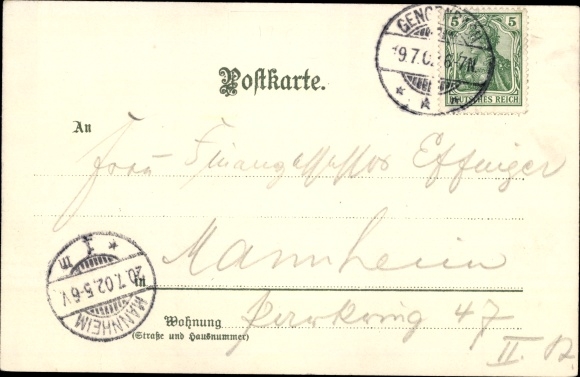 GENGENBACH
5 5
9.7.0. 6-7N.
DEUTSCHES REICH
Postkarte.
An
Frau Finanzassessor Effinger
Mannheim
in
MANNHEIM 1
20.7.02.5-6V.
Wohnung
(Straße und Hausnummer)
47
II.